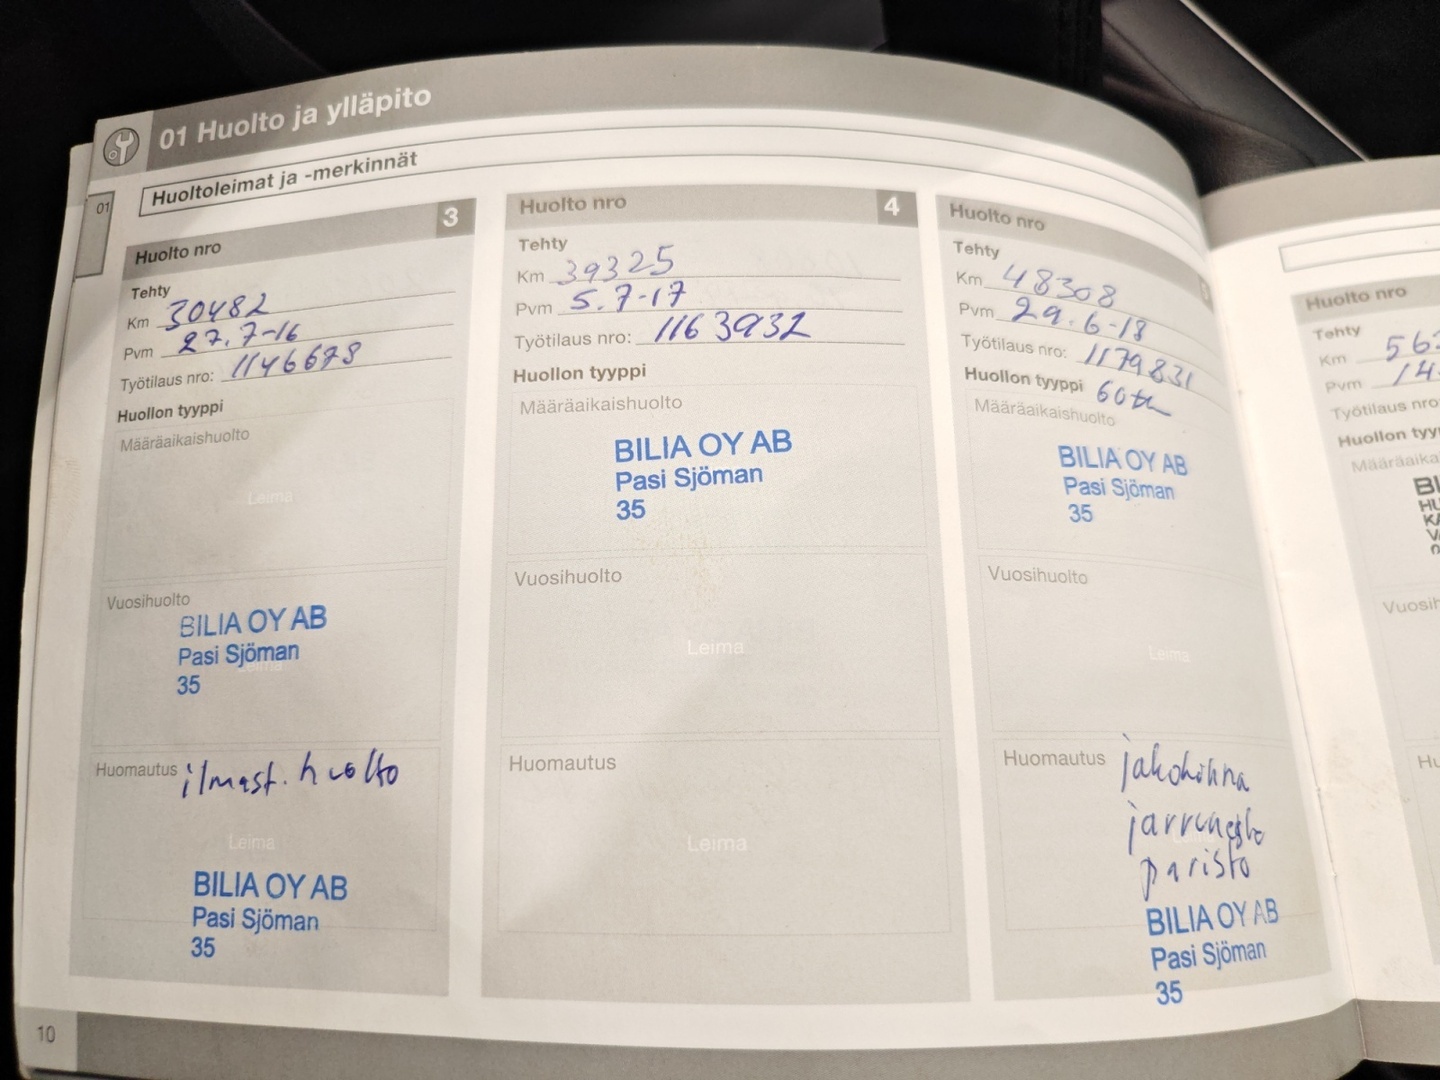 01 Huolto ja ylläpito
Huoltoleimat ja -merkinnät
01
Huolto nro 3
Tehty
Km 30482
Pvm 27.7-16
Työtilaus nro: 1146678
Huollon tyyppi
Määräaikaishuolto
Leima
Vuosihuolto
BILIA OY AB
Pasi Sjöman
Leima
35
Huomautus ilmast. huolto
Leima
BILIA OY AB
Pasi Sjöman
35
Huolto nro 4
Tehty
Km 39325
Pvm 5.7-17
Työtilaus nro: 1163932
Huollon tyyppi
Määräaikaishuolto
BILIA OY AB
Pasi Sjöman
35
Vuosihuolto
Leima
Huomautus
Leima
Huolto nro
Tehty
Km 48308
Pvm 29.6-18
Työtilaus nro: 1179831
Huollon tyyppi 60th
Määräaikaishuolto
BILIA OY AB
Pasi Sjöman
35
Vuosihuolto
Leima
Huomautus jakohihna
jarruneste
paristo
BILIA OY AB
Pasi Sjöman
35
10
Huolto nro
Tehty
Km 56
Pvm 14
Työtilaus nro
Huollon